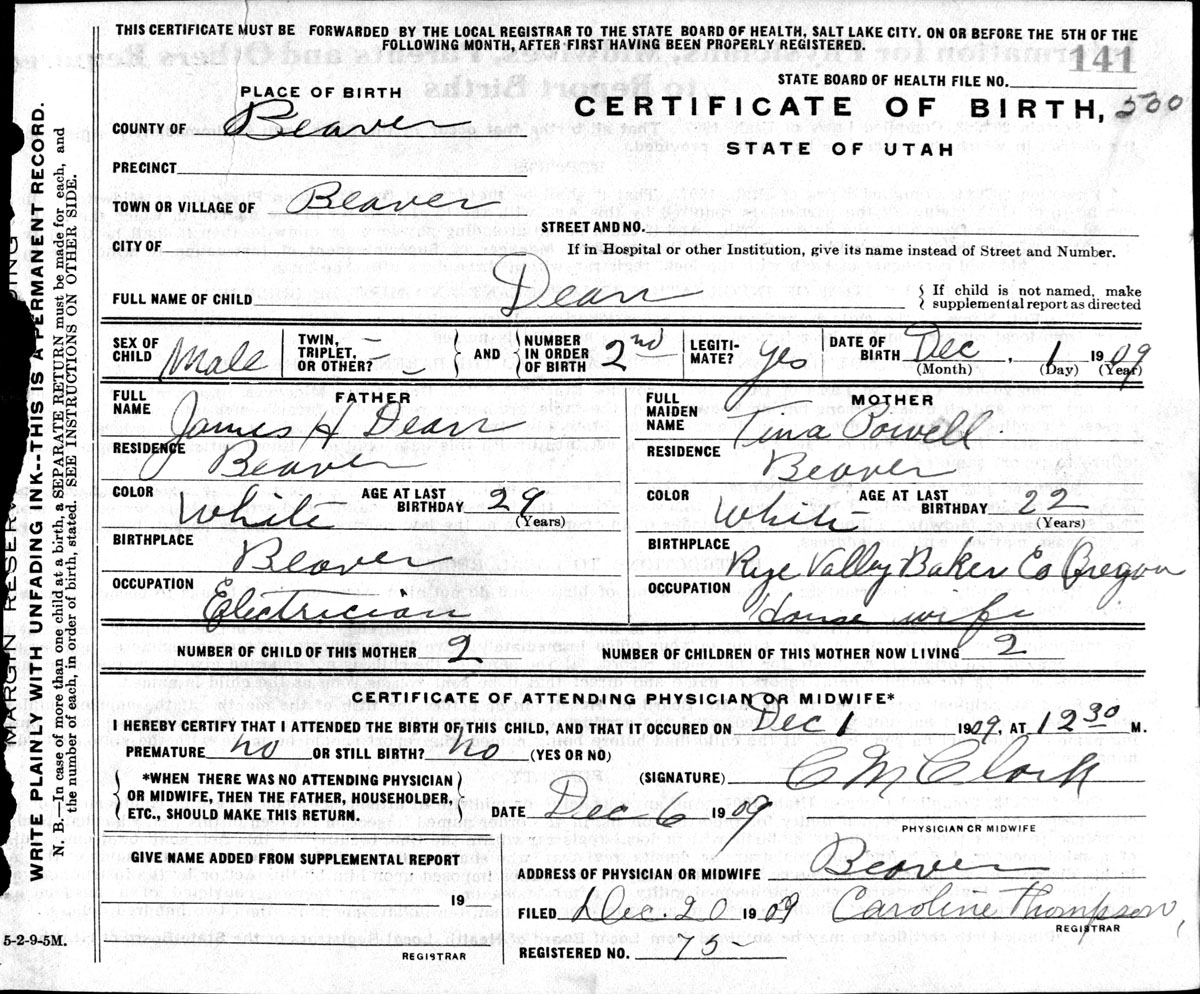 THIS CERTIFICATE MUST BE FORWARDED BY THE LOCAL REGISTRAR TO THE STATE BOARD OF HEALTH, SALT LAKE CITY. ON OR BEFORE THE 5TH OF THE
FOLLOWING MONTH, AFTER FIRST HAVING BEEN PROPERLY REGISTERED.
141
STATE BOARD OF HEALTH FILE NO.
PLACE OF BIRTH
CERTIFICATE OF BIRTH, 500
COUNTY OF Beaver
STATE OF UTAH
PRECINCT
TOWN OR VILLAGE OF Beaver
STREET AND NO.
CITY OF
If in Hospital or other Institution, give its name instead of Street and Number.
FULL NAME OF CHILD Dean { If child is not named, make
supplemental report as directed
SEX OF CHILD Male TWIN, TRIPLET, OR OTHER? - } AND { NUMBER IN ORDER OF BIRTH 2nd LEGITI-MATE? Yes DATE OF BIRTH Dec, 1 1909
(Month) (Day) (Year)
FATHER
FULL NAME James H Dean
RESIDENCE Beaver
COLOR White AGE AT LAST BIRTHDAY 29
(Years)
BIRTHPLACE Beaver
OCCUPATION Electrician
MOTHER
FULL MAIDEN NAME Tina Powell
RESIDENCE Beaver
COLOR White AGE AT LAST BIRTHDAY 22
(Years)
BIRTHPLACE Rye Valley Baker Co Oregon
OCCUPATION House wife
NUMBER OF CHILD OF THIS MOTHER 2 NUMBER OF CHILDREN OF THIS MOTHER NOW LIVING 2
CERTIFICATE OF ATTENDING PHYSICIAN OR MIDWIFE*
I HEREBY CERTIFY THAT I ATTENDED THE BIRTH OF THIS CHILD, AND THAT IT OCCURED ON Dec 1 1909, AT 12 30 M.
PREMATURE no OR STILL BIRTH? no (YES OR NO)
{ *WHEN THERE WAS NO ATTENDING PHYSICIAN
OR MIDWIFE, THEN THE FATHER, HOUSEHOLDER,
ETC., SHOULD MAKE THIS RETURN. }
(SIGNATURE) C M Clark
DATE Dec 6 1909
PHYSICIAN OR MIDWIFE
GIVE NAME ADDED FROM SUPPLEMENTAL REPORT
ADDRESS OF PHYSICIAN OR MIDWIFE Beaver
19
FILED Dec 20 1909 Caroline Thompson,
REGISTRAR
REGISTRAR
REGISTERED NO. 75-
5-2-9-5M.
MARGIN RESERV
WRITE PLAINLY WITH UNFADING INK--THIS IS A PERMANENT RECORD.
N. B.--In case of more than one child at a birth, a SEPARATE RETURN must be made for each, and
the number of each, in order of birth, stated. SEE INSTRUCTIONS ON OTHER SIDE.